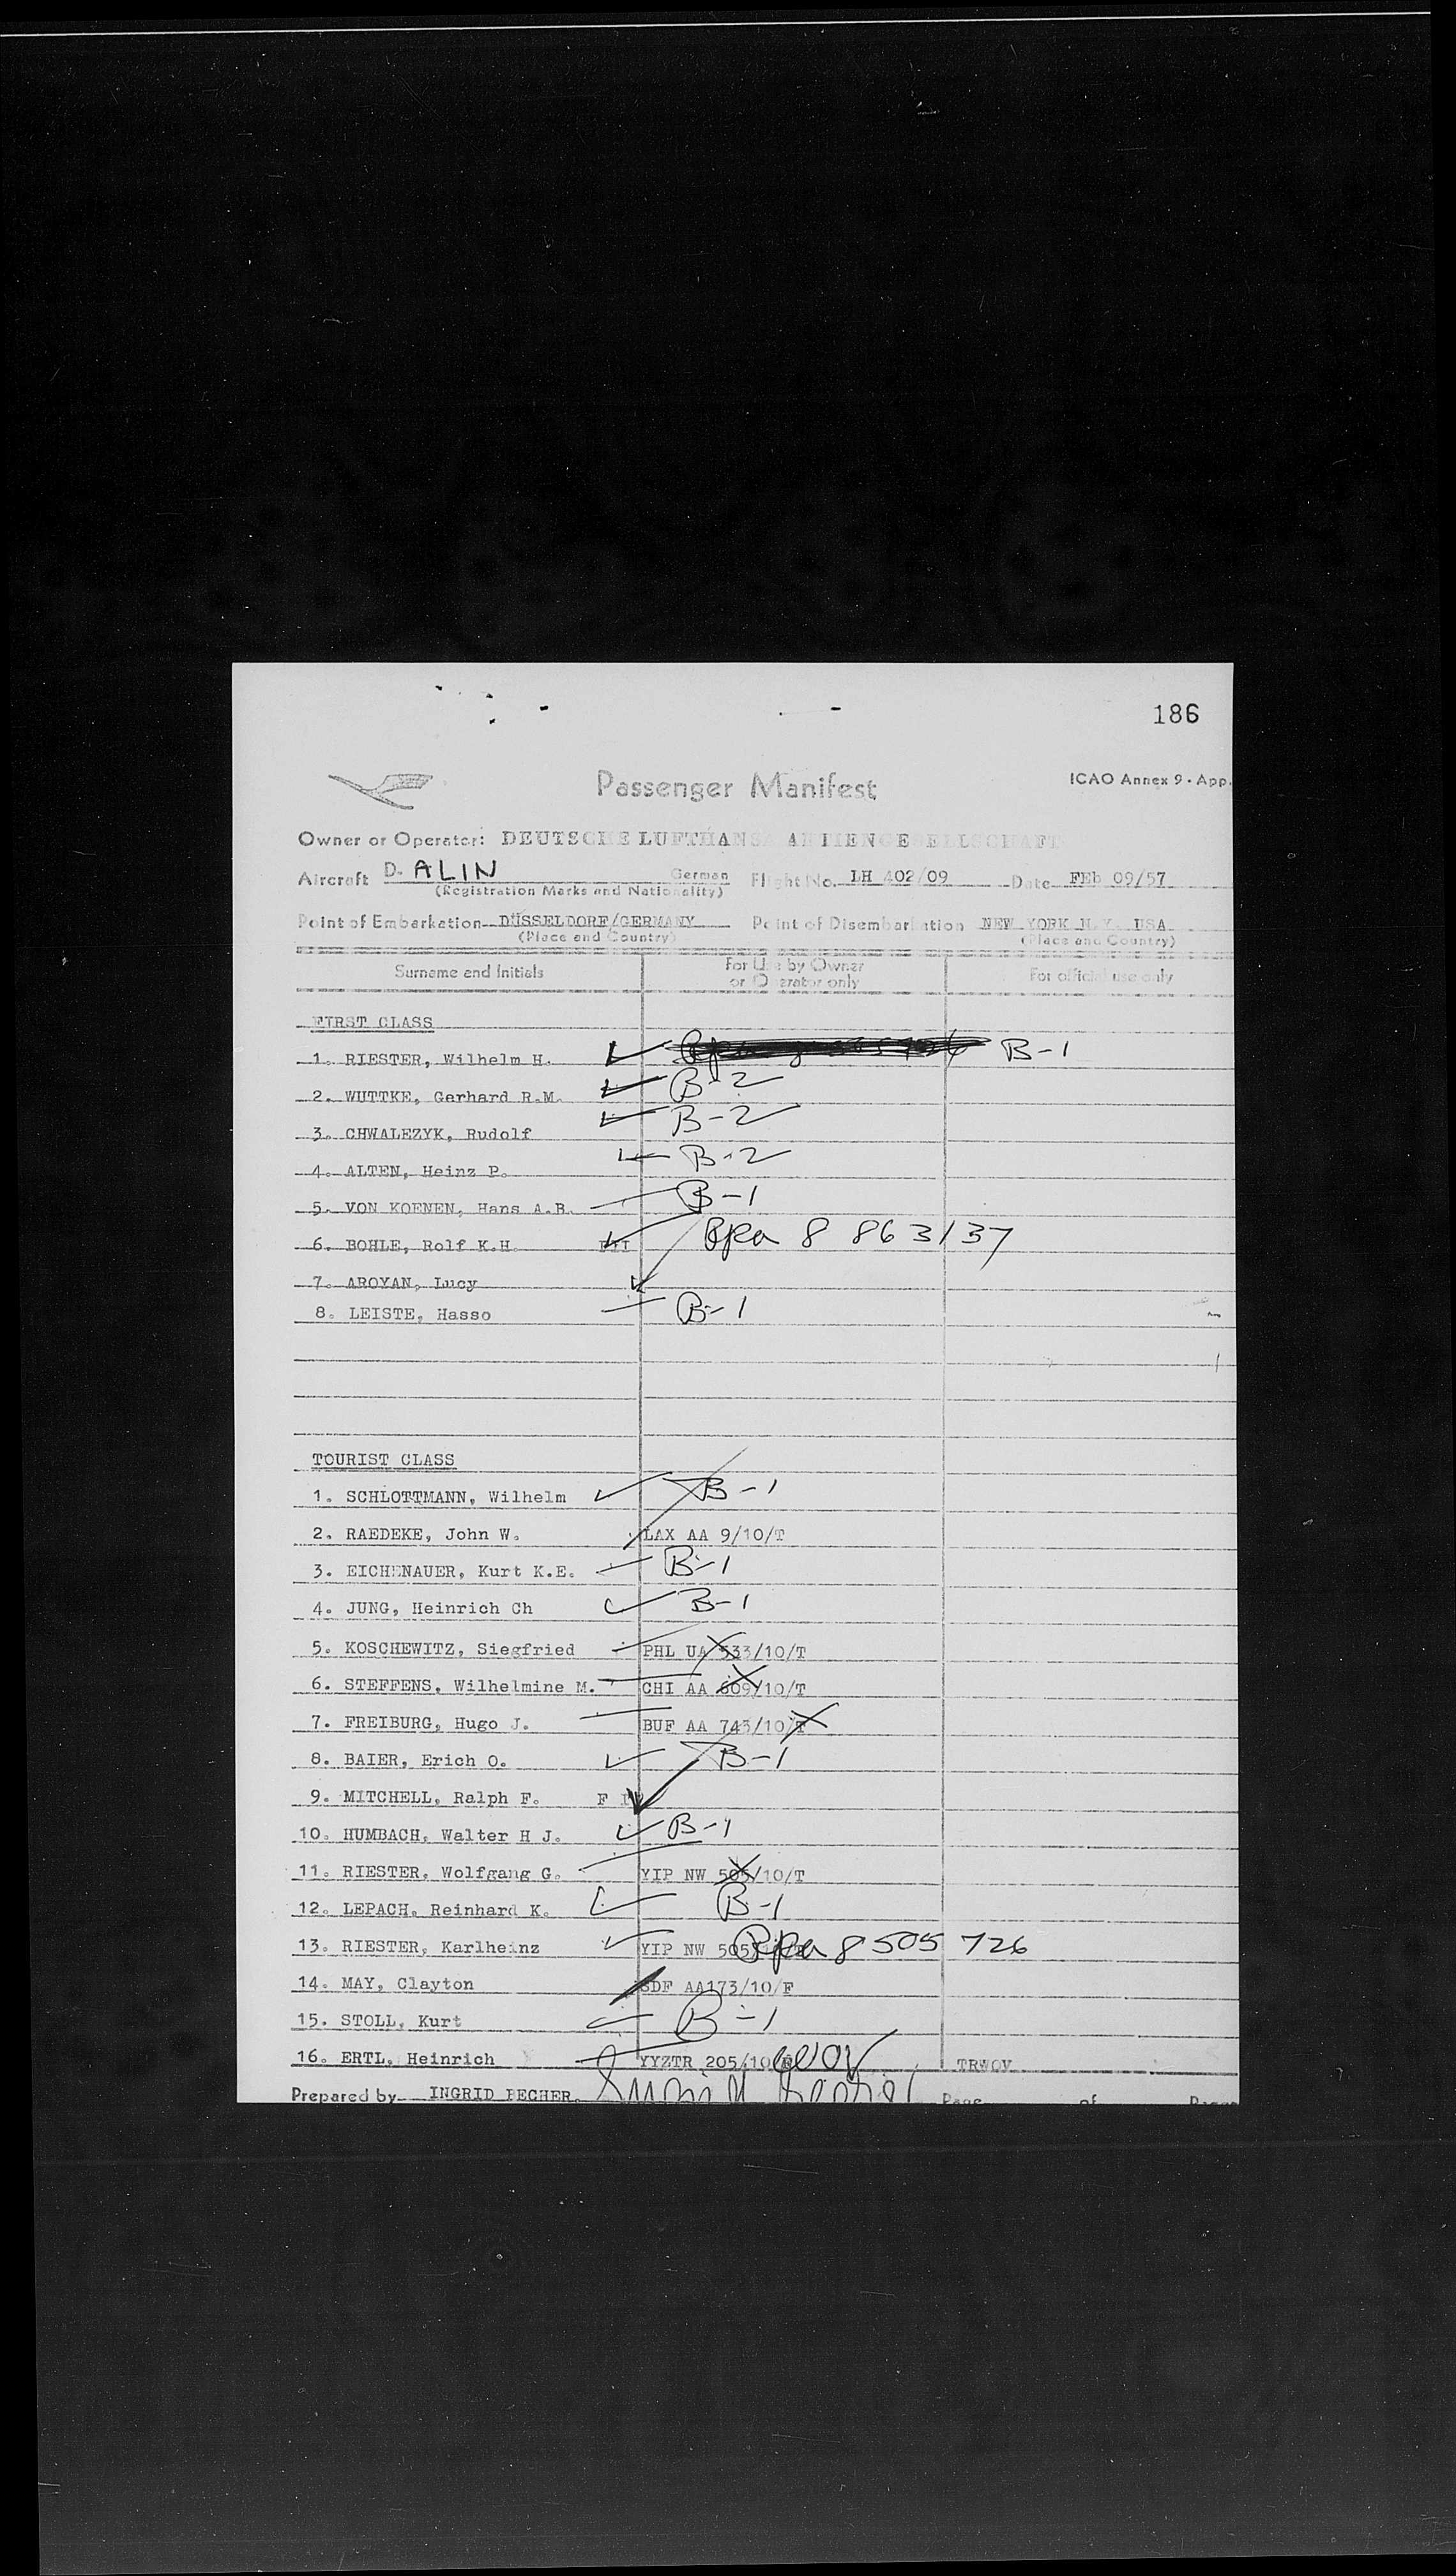 186
Passenger Manifest
ICAO Annex 9 - App.
Owner or Operator: DEUTSCHE LUFTHANSA AKTIENGESELLSCHAFT
Aircraft D-ALIN German Flight No. LH 402/09 Date FEb 09/57
(Registration Marks and Nationality)
Point of Embarkation DÜSSELDORF/GERMANY Point of Disembarkation NEW YORK N.Y. USA
(Place and Country) (Place and Country)
Surname and Initials For Use by Owner or Operator only For official use only
FIRST CLASS
1. RIESTER, Wilhelm H. B-1
2. WUTTKE, Gerhard R.M. B-2
3. CHWALEZYK, Rudolf B-2
4. ALTEN, Heinz P. B-2
5. VON KOENEN, Hans A.B. B-1
6. BOHLE, Rolf K.H. 8 863137
7. AROYAN, Lucy
8. LEISTE, Hasso B-1
TOURIST CLASS
1. SCHLOTTMANN, Wilhelm B-1
2. RAEDEKE, John W. LAX AA 9/10/T
3. EICHENAUER, Kurt K.E. B-1
4. JUNG, Heinrich Ch B-1
5. KOSCHEWITZ, Siegfried PHL UA 533/10/T
6. STEFFENS, Wilhelmine M. CHI AA 609/10/T
7. FREIBURG, Hugo J. BUF AA 743/10/T
8. BAIER, Erich O. B-1
9. MITCHELL, Ralph F.
10. HUMBACH, Walter H J. B-1
11. RIESTER, Wolfgang G. YIP NW 505/10/T
12. LEPACH, Reinhard K. B-1
13. RIESTER, Karlheinz YIP NW 505 8 505 726
14. MAY, Clayton SDF AA173/10/F
15. STOLL, Kurt B-1
16. ERTL, Heinrich YYZTR 205/10 TRWOV
Prepared by INGRID BECHER Page of